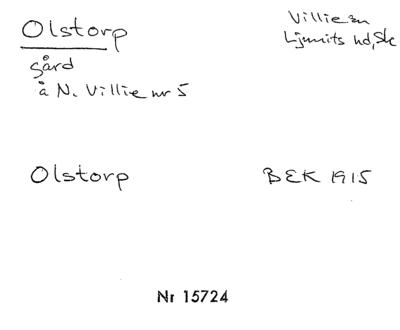 Olstorp
Villie sn
Ljunits hd, Sk
gård
å N. Villie nr 5
Olstorp
BEK 1915
Nr 15724